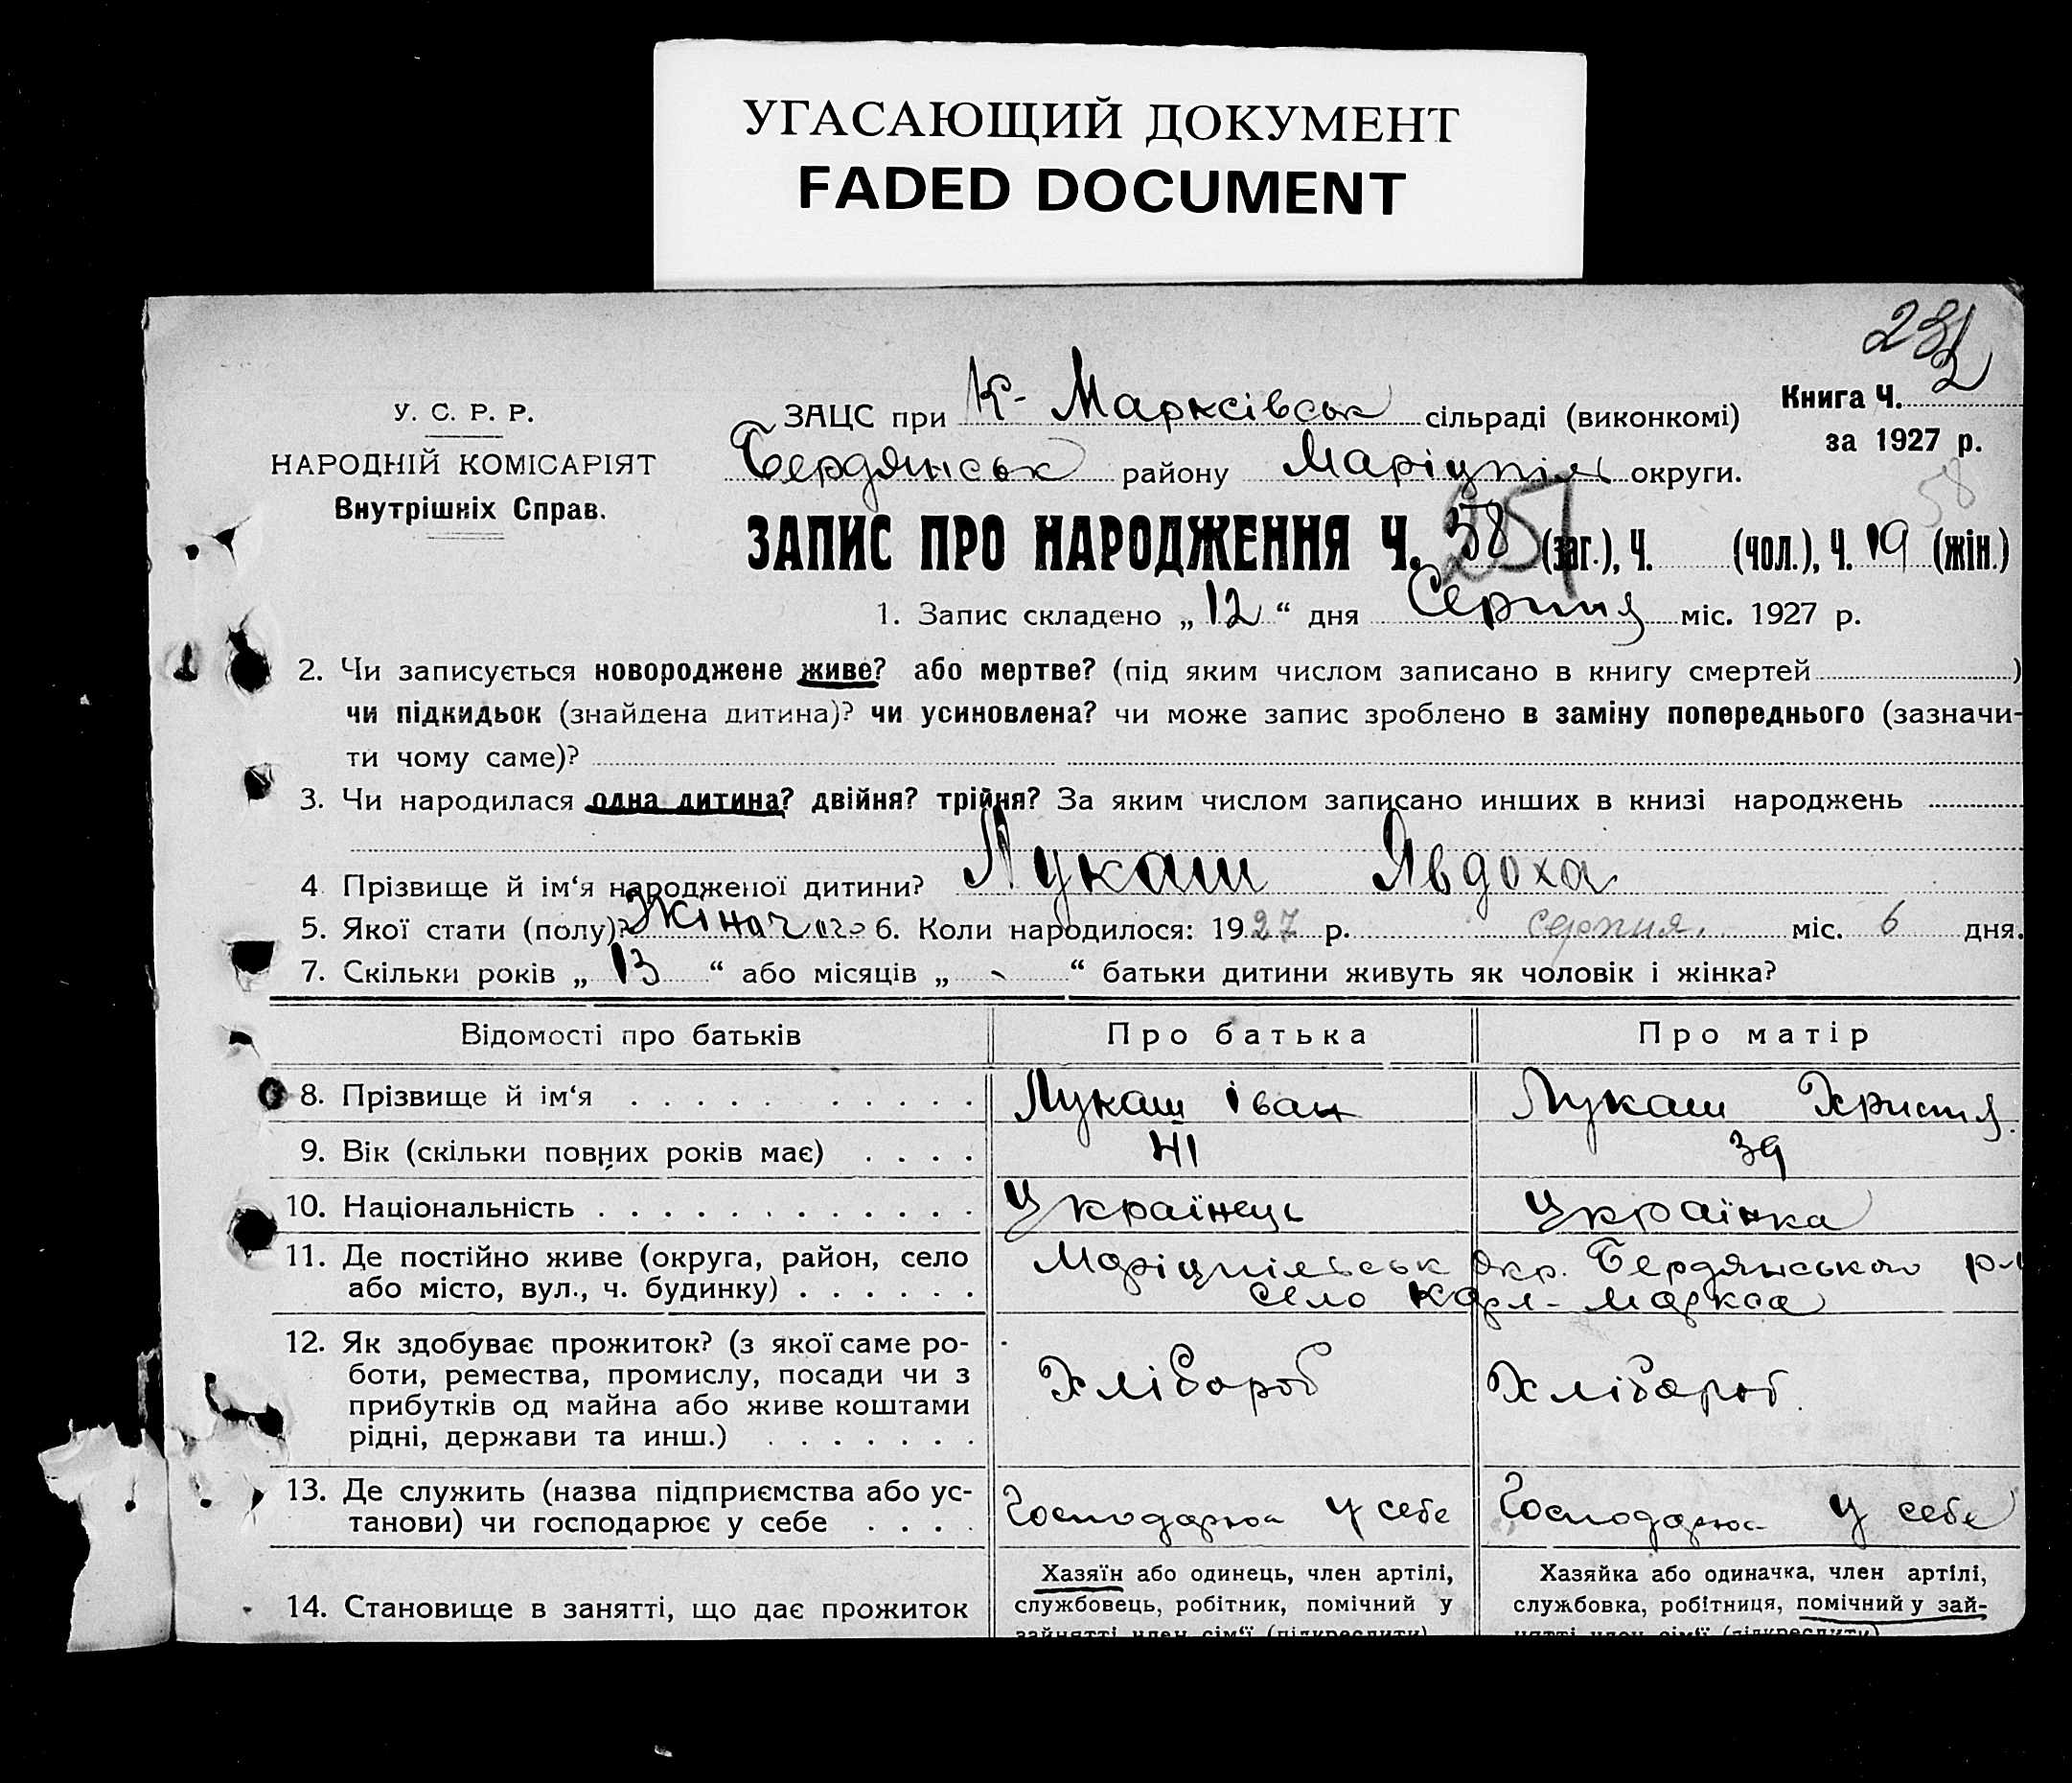 УГАСАЮЩИЙ ДОКУМЕНТ
FADED DOCUMENT
232
У. С. Р. Р.
НАРОДНІЙ КОМІСАРІЯТ
Внутрішніх Справ.
ЗАЦС при К- Марксівськ сільраді (виконкомі)
Бердянськ району Маріупіль округи.
Книга Ч. 2
за 1927 р.
58
ЗАПИС ПРО НАРОДЖЕННЯ Ч. 58 (заг.), Ч. (чол.), Ч. 19 (жін.)
257
1. Запис складено „ 12 “ дня Серпня міс. 1927 р.
2. Чи записується новороджене живе? або мертве? (під яким числом записано в книгу смертей )
чи підкидьок (знайдена дитина)? чи усиновлена? чи може запис зроблено в заміну попереднього (зазначи-
ти чому саме)?
3. Чи народилася одна дитина? двійня? трійня? За яким числом записано инших в книзі народжень
4 Прізвище й ім‘я народженої дитини? Лукаш Явдоха
5. Якої стати (полу)? Жіночаго 6. Коли народилося: 1927 р. серпня. міс. 6 дня.
7. Скільки років „ 13 “ або місяців „ - “ батьки дитини живуть як чоловік і жінка?
Відомості про батьків Про батька Про матір
8. Прізвище й ім‘я Лукаш Іван Лукаш Христя.
9. Вік (скільки повних років має) 41 39
10. Національність Українець Українка
11. Де постійно живе (округа, район, село
або місто, вул., ч. будинку)
Маріупільськ окр. Бердянського р-н
село Карл- Маркса
12. Як здобуває прожиток? (з якої саме ро-
боти, ремества, промислу, посади чи з
прибутків од майна або живе коштами
рідні, держави та инш.)
Хлібороб Хлібороб.
13. Де служить (назва підприємства або ус-
танови) чи господарює у себе
Господарює у себе Господарює у себе
14. Становище в занятті, що дає прожиток
Хазяїн або одинець, член артілі,
службовець, робітник, помічний у
зайнятті член сім‘ї (підкреслити)
Хазяйка або одиначка, член артілі,
службовка, робітниця, помічний у зай-
нятті член сім‘ї (підкреслити)